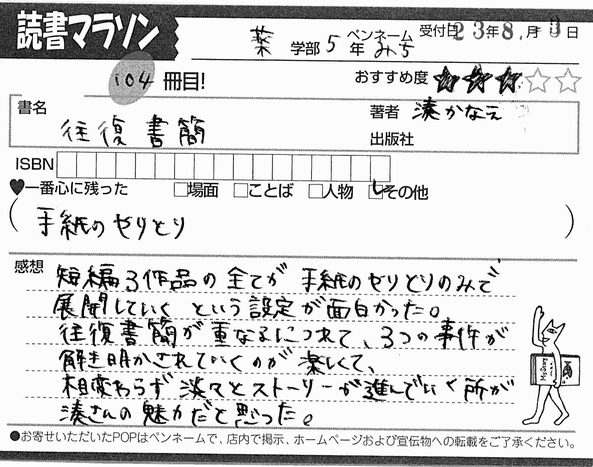 読書マラソン
薬 学部 5 年 ペンネーム みち 受付日 23年8月3日
104 冊目! おすすめ度 ★★★☆☆
書名 往復書簡 著者 湊かなえ
出版社
ISBN
♥一番心に残った □場面 □ことば □人物 ☑その他
(手紙のやりとり)
感想 短編3作品の全てが手紙のやりとりのみで
展開していくという設定が面白かった。
往復書簡が重なるにつれて、3つの事件が
解き明かされていくのが楽しくて、
相変わらず淡々とストーリーが進んでいく所が
湊さんの魅力だと思った。
●お寄せいただいたPOPはペンネームで、店内で掲示、ホームページおよび宣伝物への転載をご了承ください。